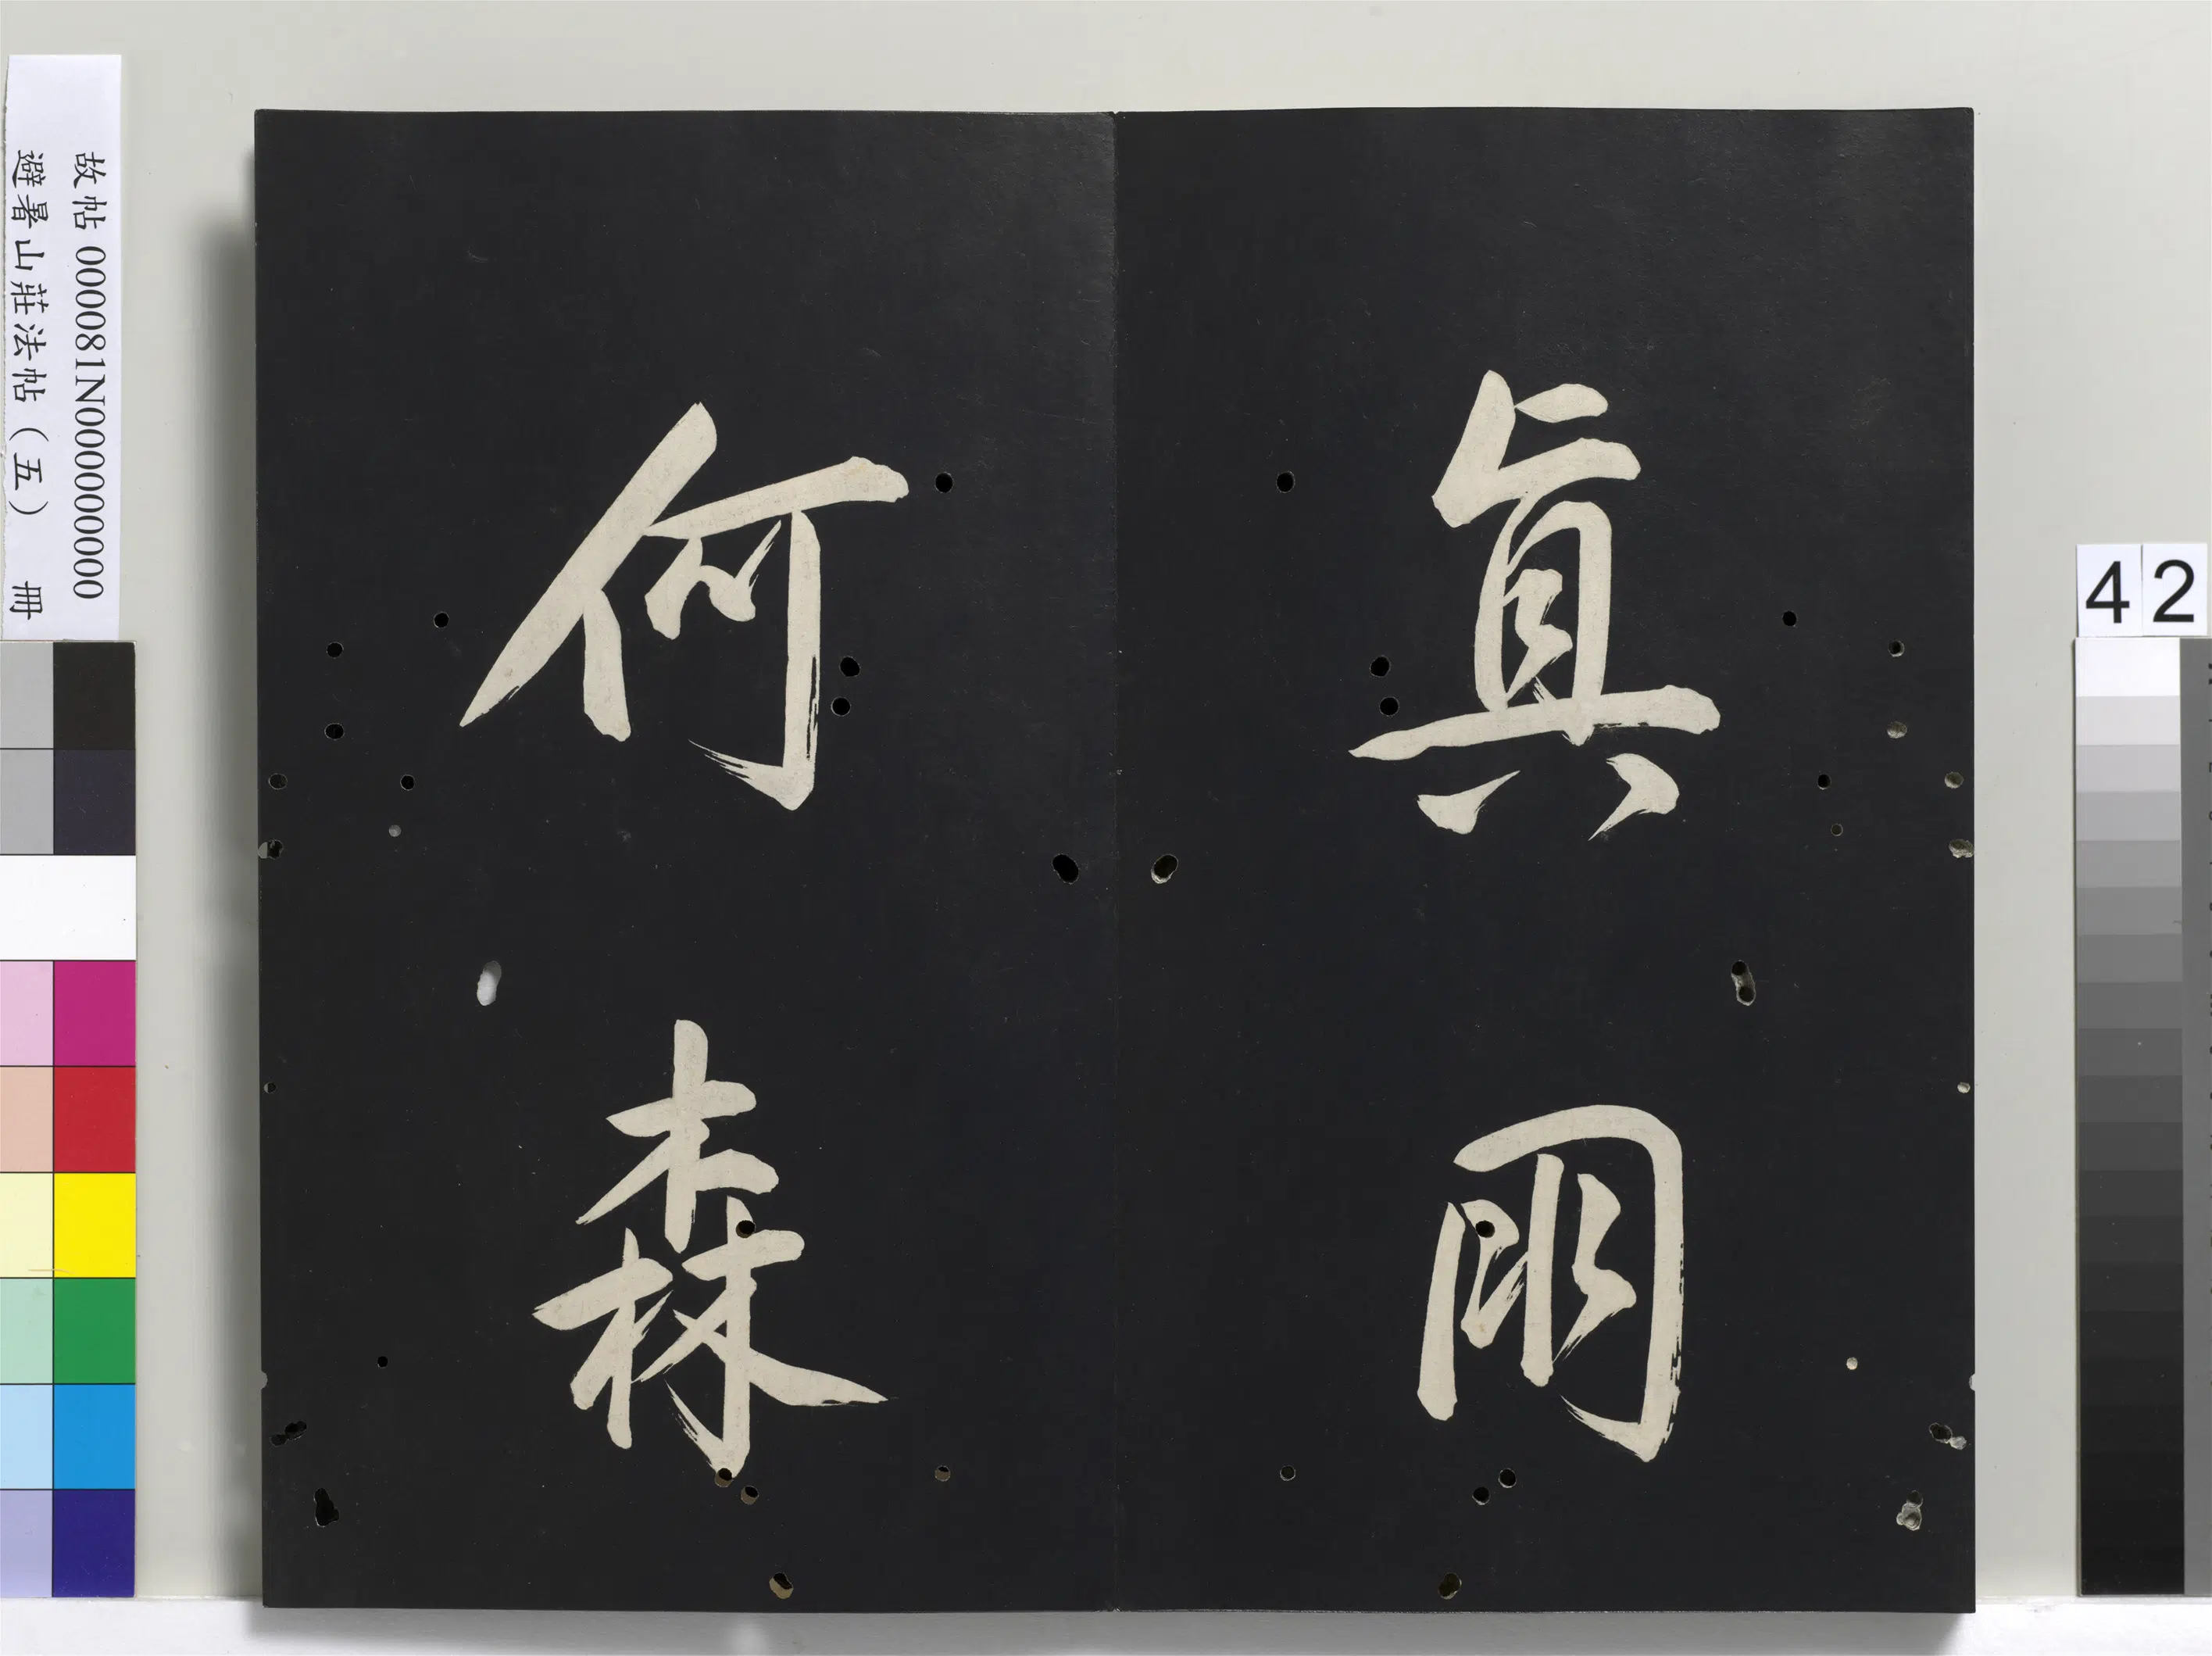 故帖 000081N000000000
避暑山莊法帖（五） 冊
真
何森
42